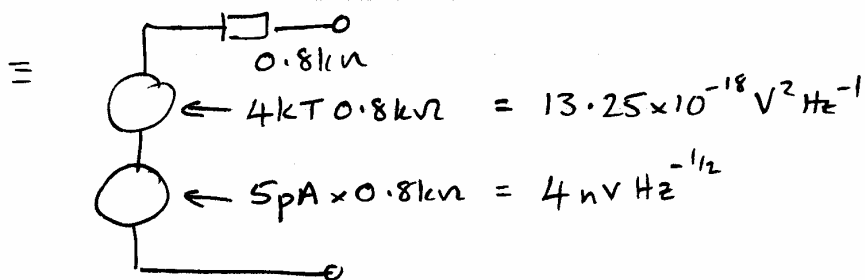 ≡
0.8kΩ
4kT 0.8kΩ = 13.25×10⁻¹⁸ V² Hz⁻¹
5pA × 0.8kΩ = 4 nV Hz⁻¹/²